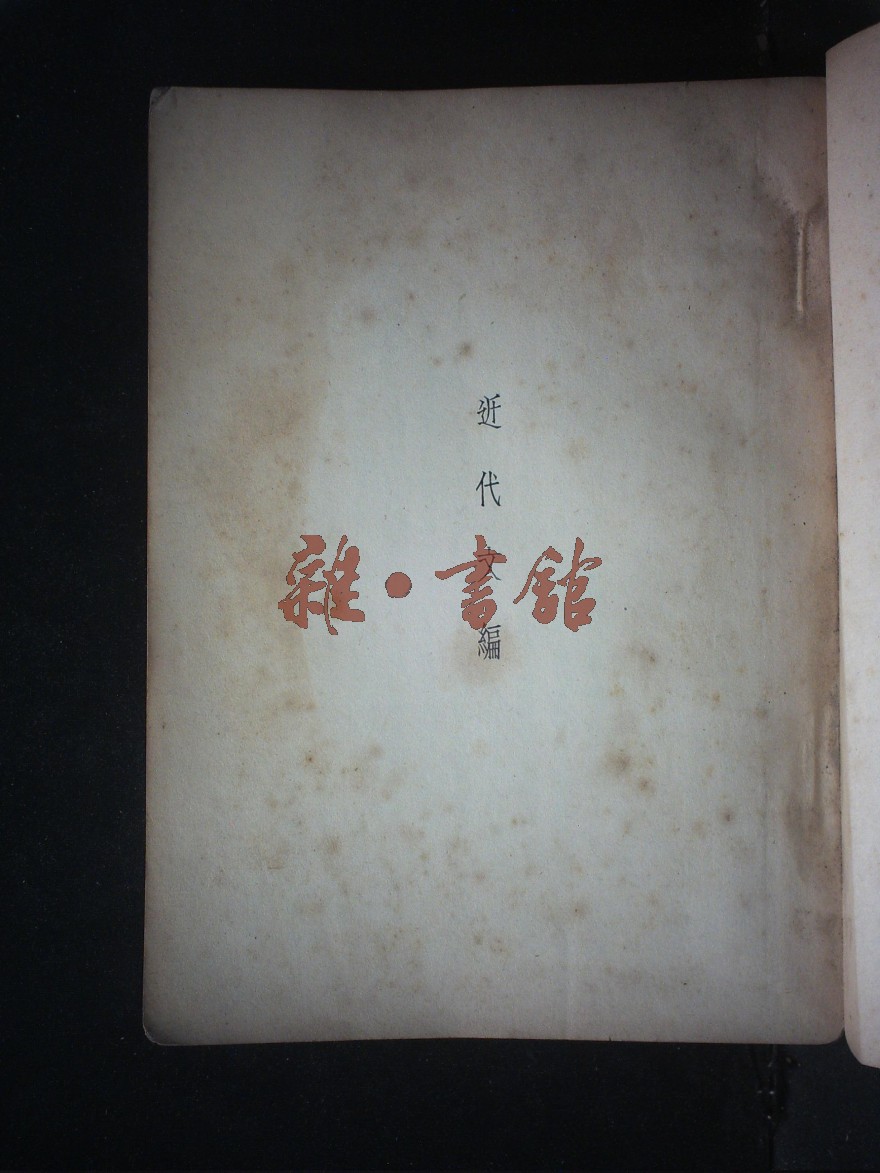 近代文編
雜·書館